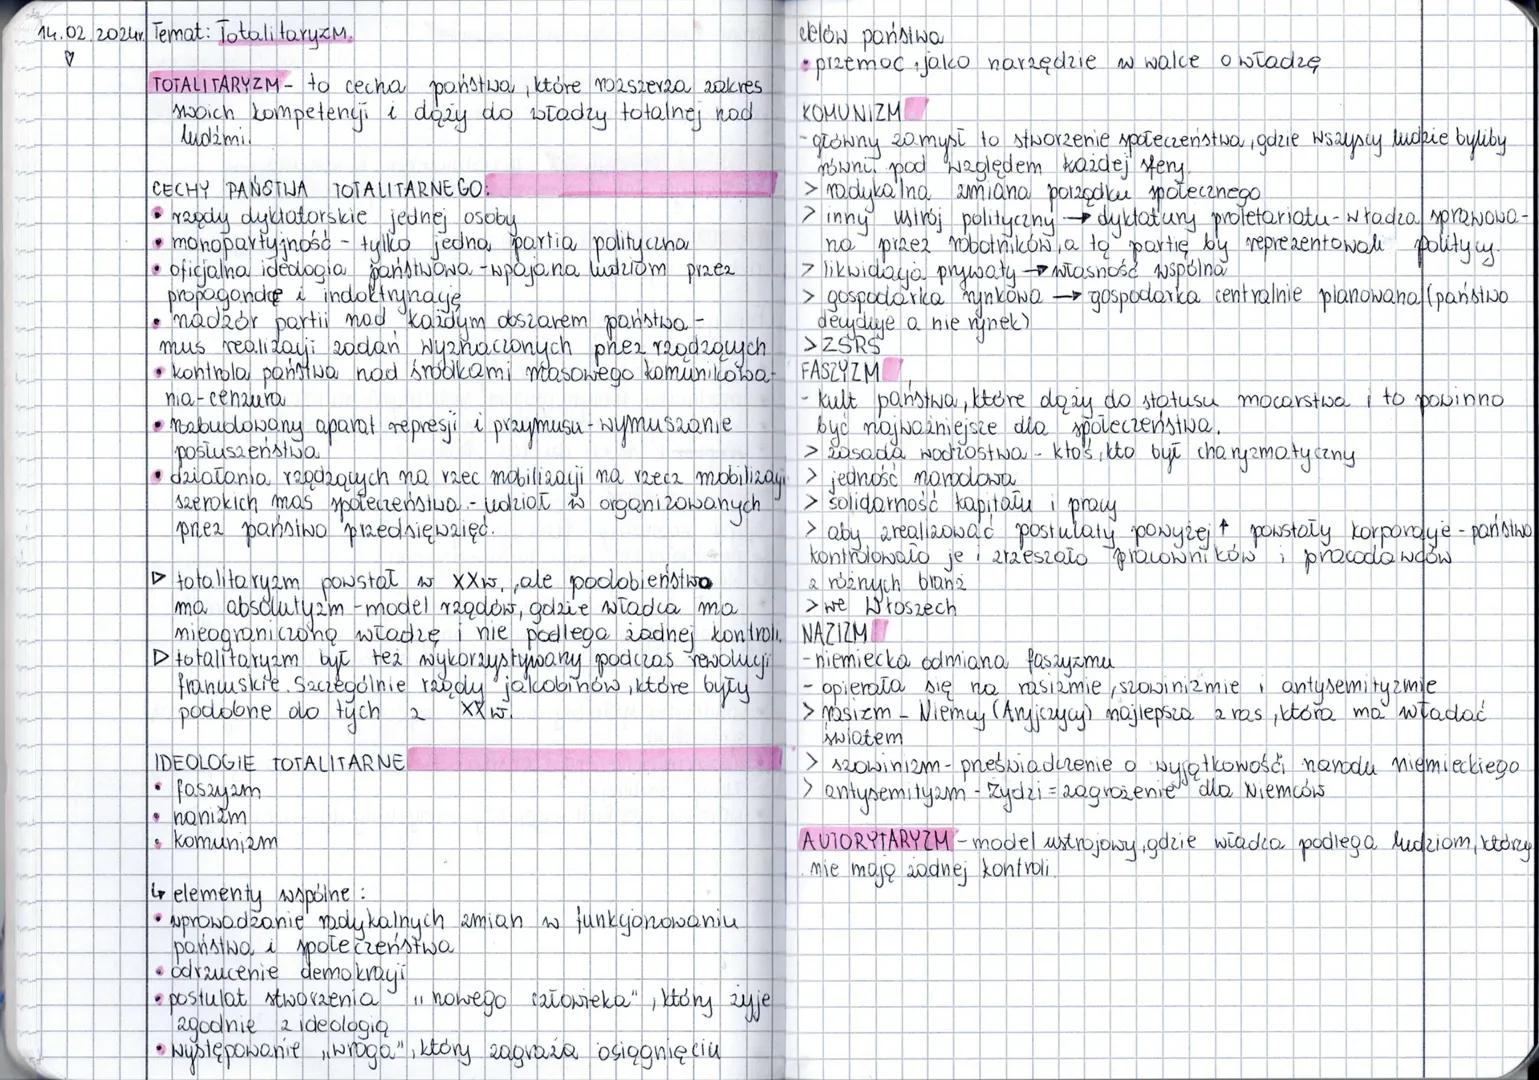 14.02.2024r. Temat: Totalitaryzm.
TOTALITARYZM - to cecha państwa, które rozszerza zakres
swoich kompetencji i dąży do władzy totalnej nad
ludźmi.
CECHY PAŃSTWA TOTALITARNEGO:
• rządy dyktatorskie jednej osoby
• monopartyjność - tylko jedna partia polityczna
• oficjalna ideologia państwowa - wpajana ludziom przez
propagandę i indoktrynację
• nadzór partii nad każdym obszarem państwa -
mus realizacji zadań wyznaczonych przez rządzących
• kontrola państwa nad środkami masowego komunikowa-
nia - cenzura
• rozbudowany aparat represji i przymusu - wymuszanie
posłuszeństwa
• działania rządzących na rzec mobilizacji na rzecz mobilizacji
szerokich mas społeczeństwa - udział w organizowanych
przez państwo przedsięwzięć.
▷ totalitaryzm powstał w XXw., ale podobieństwo
ma absolutyzm - model rządów, gdzie władca ma
nieograniczoną władzę i nie podlega żadnej kontroli.
▷ totalitaryzm był też wykorzystywany podczas rewolucji
francuskie. Szczególnie rządy jakobinów, które były
podobne do tych z XXw.
IDEOLOGIE TOTALITARNE
• faszyzm
• nanizm
• komunizm
↳ elementy wspólne:
• wprowadzanie radykalnych zmian w funkcjonowaniu
państwa i społeczeństwa
• odrzucenie demokracji
• postulat stworzenia „nowego człowieka", który żyje
zgodnie z ideologią
• występowanie „wroga", który zagraża osiągnięciu
celów państwa
• przemoc, jako narzędzie w walce o władzę
KOMUNIZM
- główny zamysł to stworzenie społeczeństwa, gdzie wszyscy ludzie byliby
równi pod względem każdej sfery.
> radykalna zmiana porządku społecznego
> inny ustrój polityczny → dyktatury proletariatu - władza sprawowa-
na przez robotników, a tą partię by reprezentowali politycy.
> likwidacja prywaty → własność wspólna
> gospodarka rynkowa → gospodarka centralnie planowana (państwo
decyduje a nie rynek)
> ZSRS
FASZYZM
- kult państwa, które dąży do statusu mocarstwa i to powinno
być najważniejsze dla społeczeństwa.
> zasada wodzostwa - ktoś, kto był charyzmatyczny
> jedność narodowa
> solidarność kapitału i pracy
> aby zrealizować postulaty powyżej ↑ powstały korporacje - państwo
kontrolowało je i zrzeszało pracowników i pracodawców
z różnych branż
> we Włoszech
NAZIZM
- niemiecka odmiana faszyzmu
- opierała się na rasizmie, szowinizmie i antysemityzmie
> rasizm - Niemcy (Aryjczycy) najlepsza z ras, która ma władać
światem
> szowinizm - przeświadczenie o wyjątkowości narodu niemieckiego
> antysemityzm - Żydzi = zagrożenie dla Niemców
AUTORYTARYZM - model ustrojowy, gdzie władza podlega ludziom, którzy
nie mają żadnej kontroli.